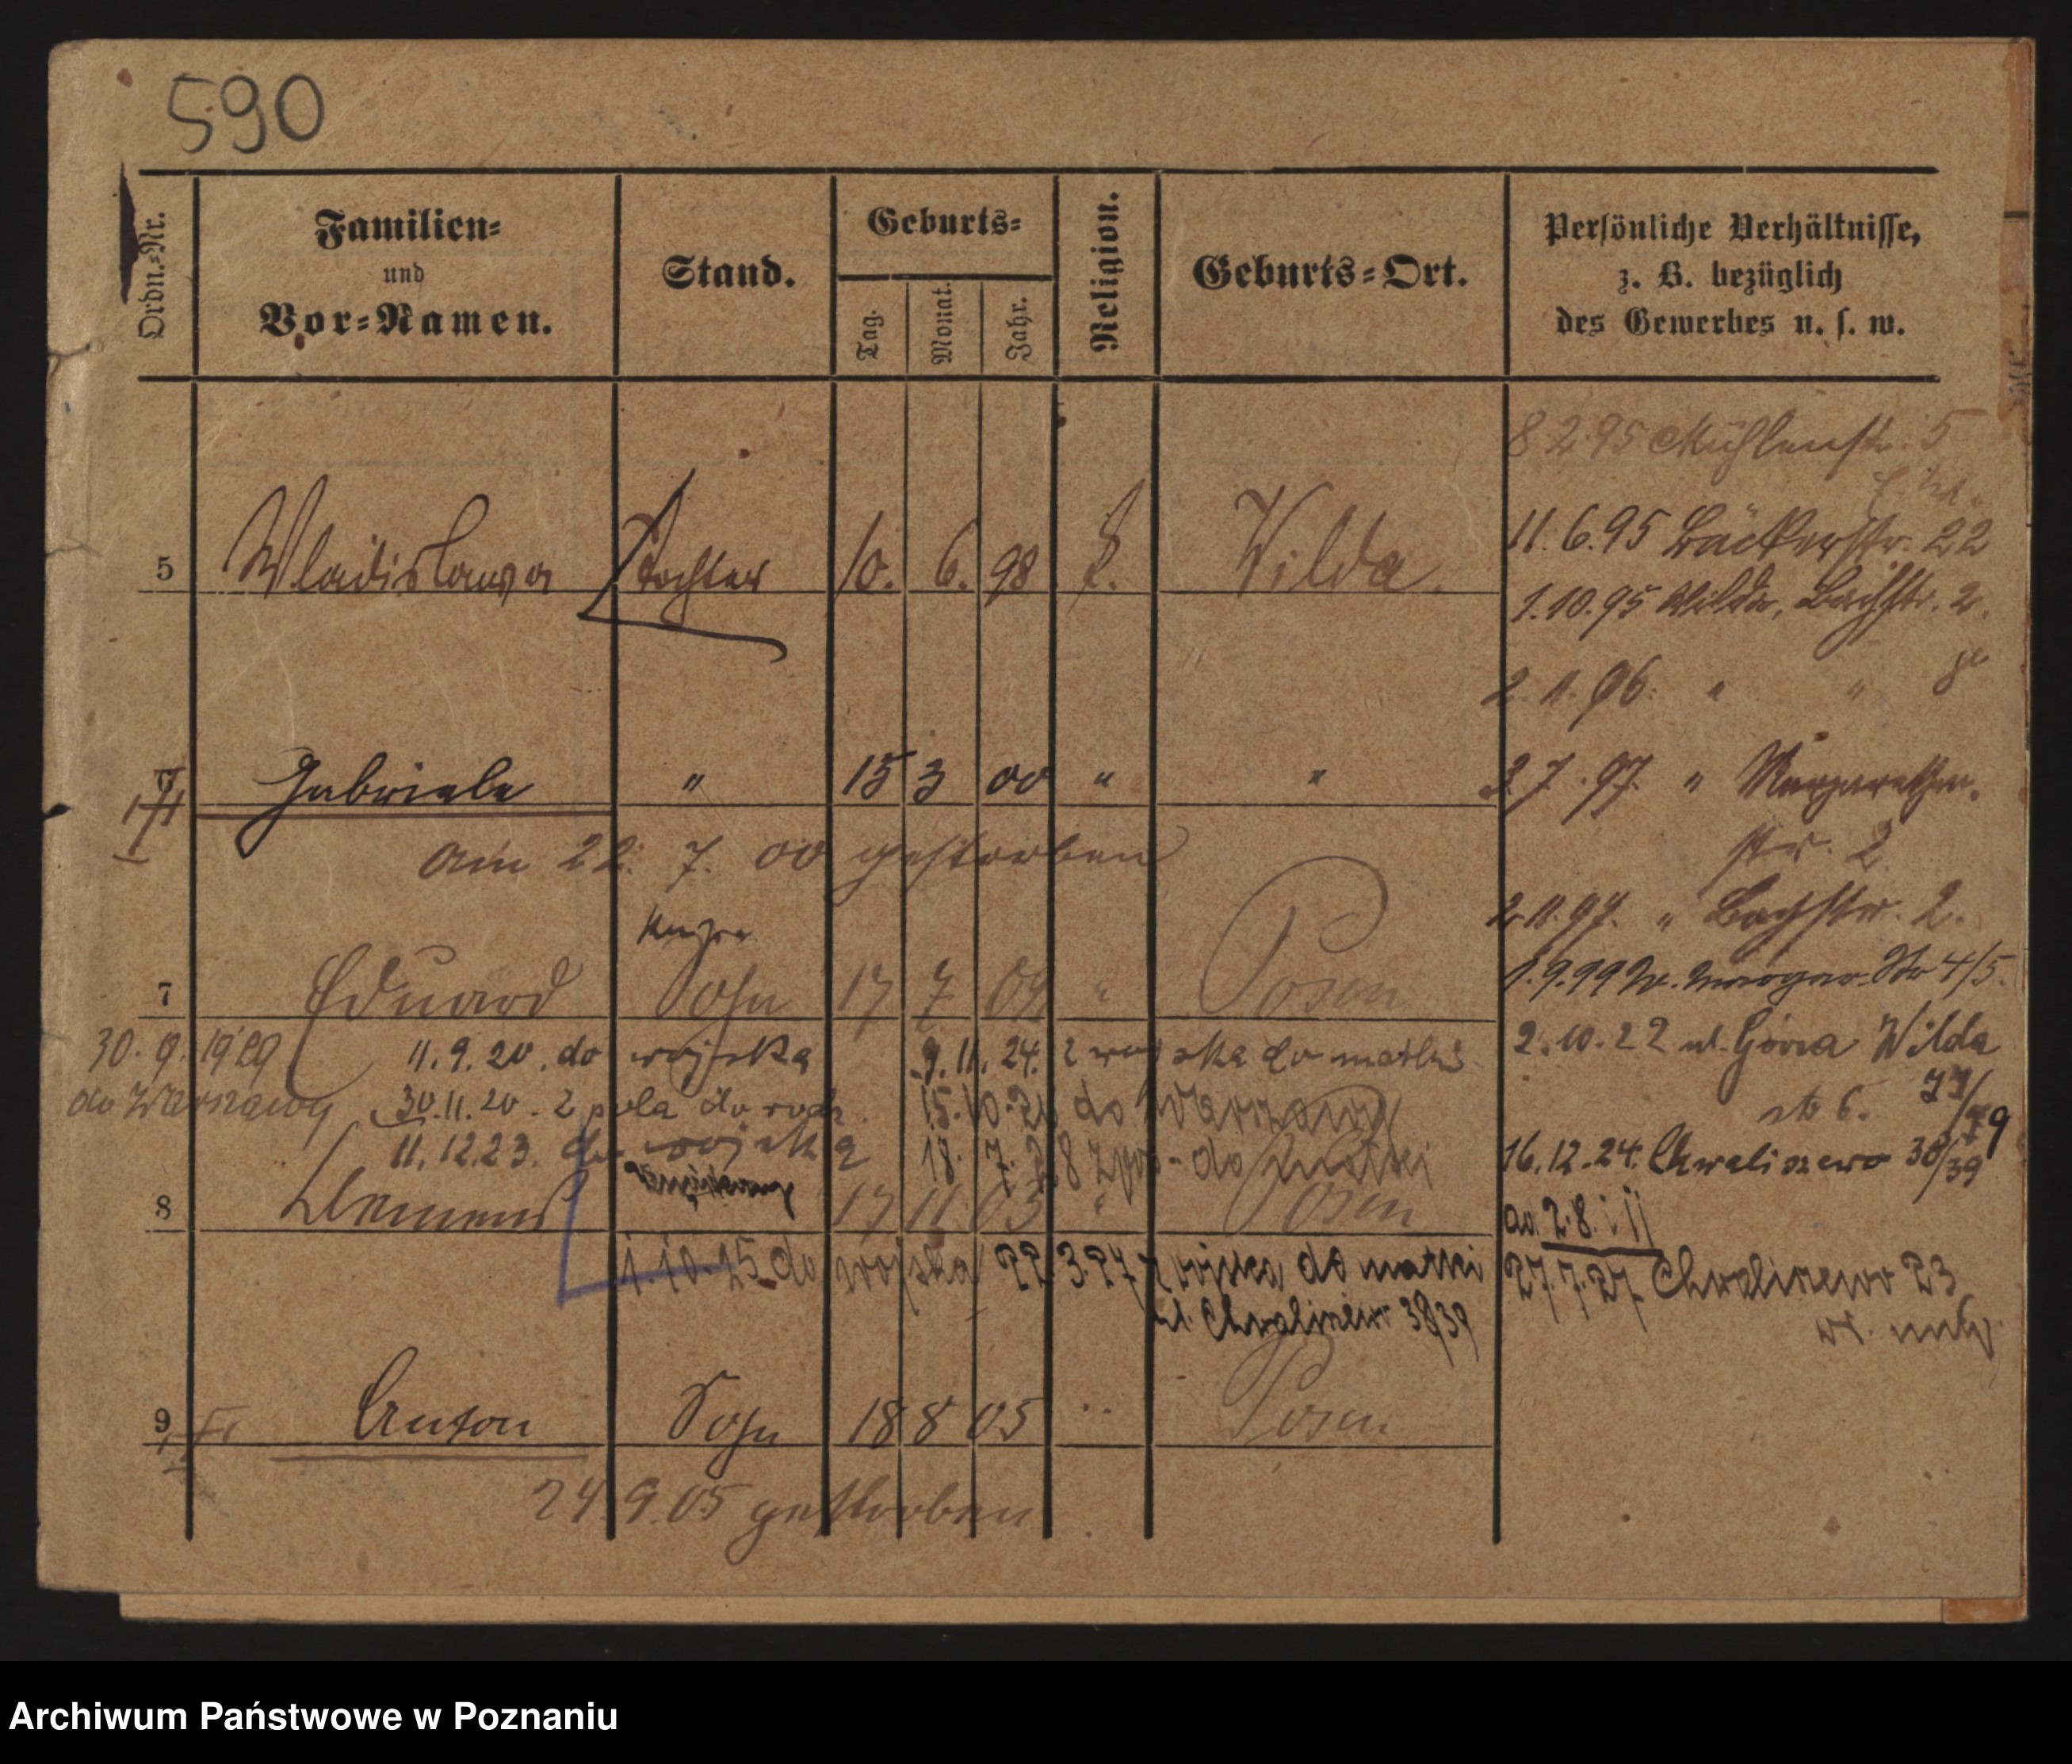 590
Ordn.-Nr.
Familien-
und
Vor-Namen.
Stand.
Geburts-
Tag.
Monat.
Jahr.
Religion.
Geburts-Ort.
Persönliche Verhältnisse,
z. B. bezüglich
des Gewerbes u. s. w.
8 2.95 Mühlenstr. 5
11.6.95 Bäckerstr. 22
5 Wladislawa Tochter 10. 6. 98 Wilda
1.10.95 Wilda, Bachstr. 2.
2. 11. 96. " "
6 Gabriele " 15 3 00 " "
3.7.97. " Margarethen-
str. 2
am 22. 7. 00 gestorben
2.11.97. " Bachstr. 2.
7 Eduard Sohn 17 7 " Posen
1.9.99 W. Str 4/5.
30. 9. 1929 11.9.20. do wojska 9.11.24. z wojska do matki
2.10.22 ul. Górna Wilda
do Warszawy 30.11.20. z pola do rodz. 15.10.26 do Warszawy
str 6.
11.12.23. do wojska 18. 7. 28 z do matki
16.12.24. Chwaliszewo 38/39
8 Clemens 17 11 03 " Posen
do 2.8.
1.10.25 do wojska 22.3.27 z wojska do matki
ul. Chwaliszewo 38/39
27.7.27 Chwaliszewo 23
9 Anton Sohn 18 8 05 " Posen
24.9.05 gestorben
Archiwum Państwowe w Poznaniu